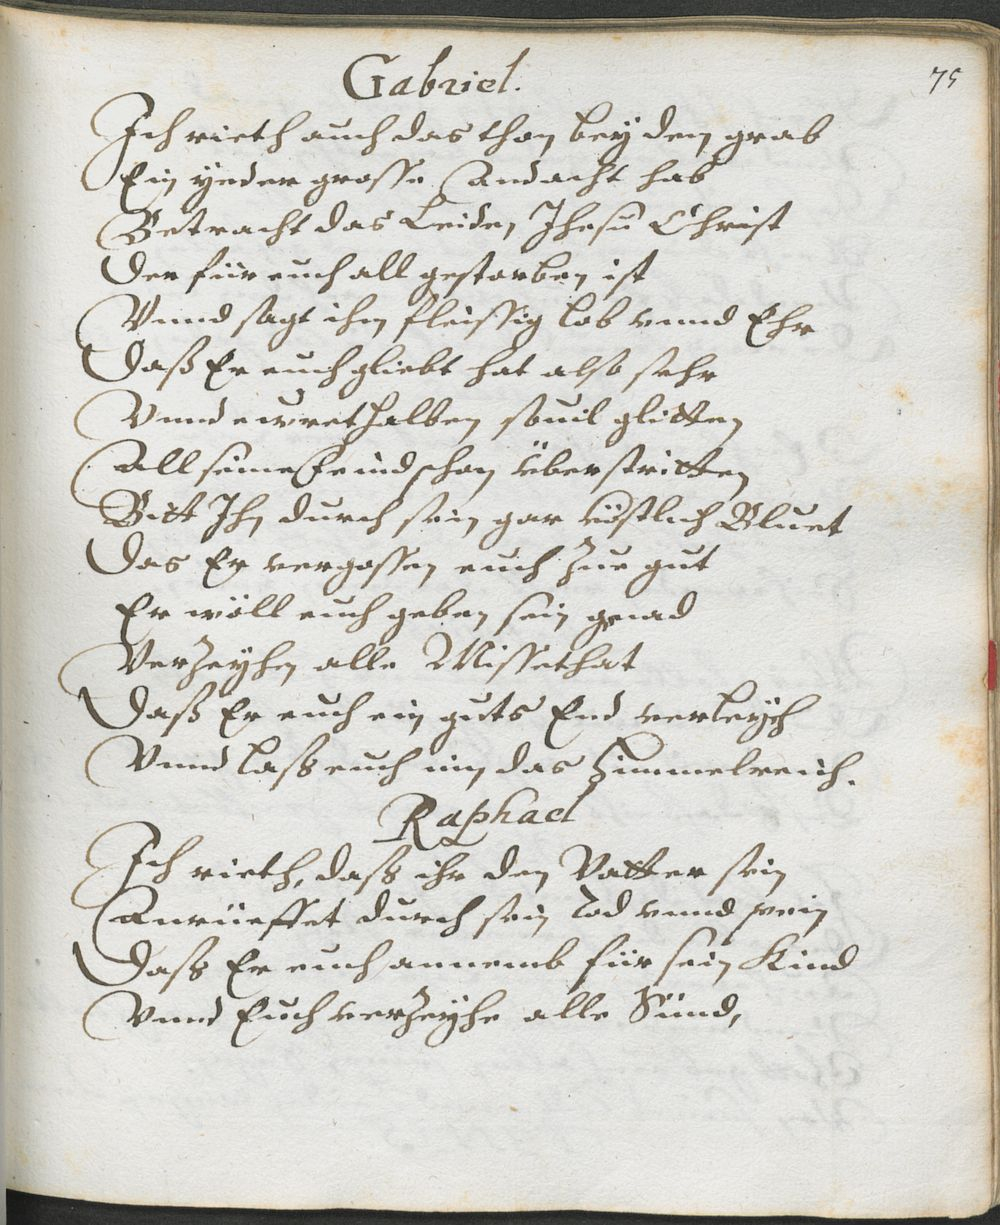 75
Gabriel.
Ich rieth auch das thon bey dem grab
Ein yeder grosse Andacht hab
Betracht das Leiden Jhesu Christ
Der für euch all gestorben ist
Vnnd sagt ihm fleissig lob vnnd Ehr
Daß Er euch gliebt hat also sehr
Vnnd ewrethalben souil glitten
All seine feind schon überstritten
Bitt Ihn durch sein gar köstlich Bluet
Das Er vergossen euch zue gut
Er wöll euch geben sein gnad
Verzeyhen alle Missethat
Daß Er euch ein guts End verleych
Vnnd lasß euch inn das himmelreich.
Raphael
Ich rieth, dasß ihr den Vatter sein
Anrüeffet durch sein Tod vnnd pein
Dasß Er euch annemb für sein Kind
Vnnd Euch verzeyhe alle Sünd,